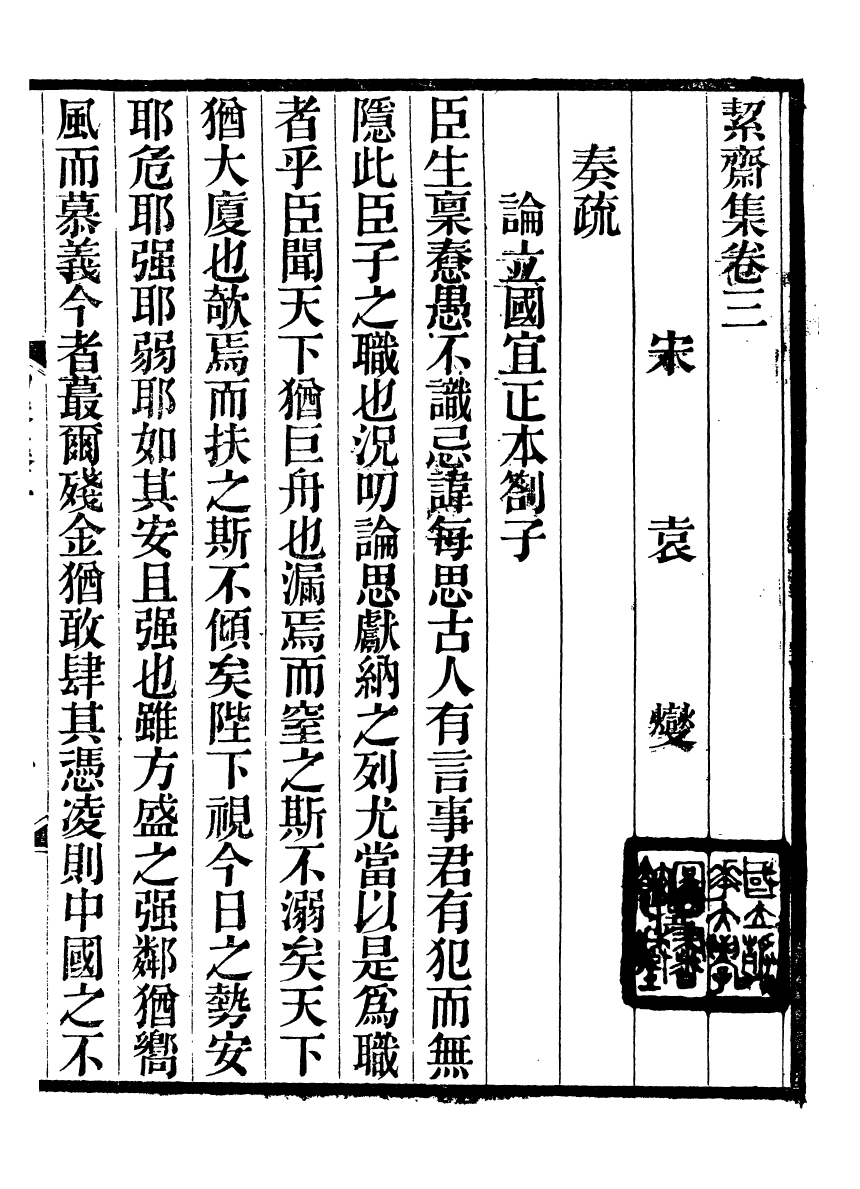 絜齋集卷三
宋袁燮
奏疏
論立國宜正本劄子
臣生稟惷愚不識忌諱每思古人有言事君有犯而無
隱此臣子之職也況叨論思獻納之列尤當以是爲職
者乎臣聞天下猶巨舟也漏焉而窒之斯不溺矣天下
猶大廈也欹焉而扶之斯不傾矣陛下視今日之勢安
耶危耶强耶弱耶如其安且强也雖方盛之强鄰猶嚮
風而慕義今者蕞爾殘金猶敢肆其憑凌則中國之不